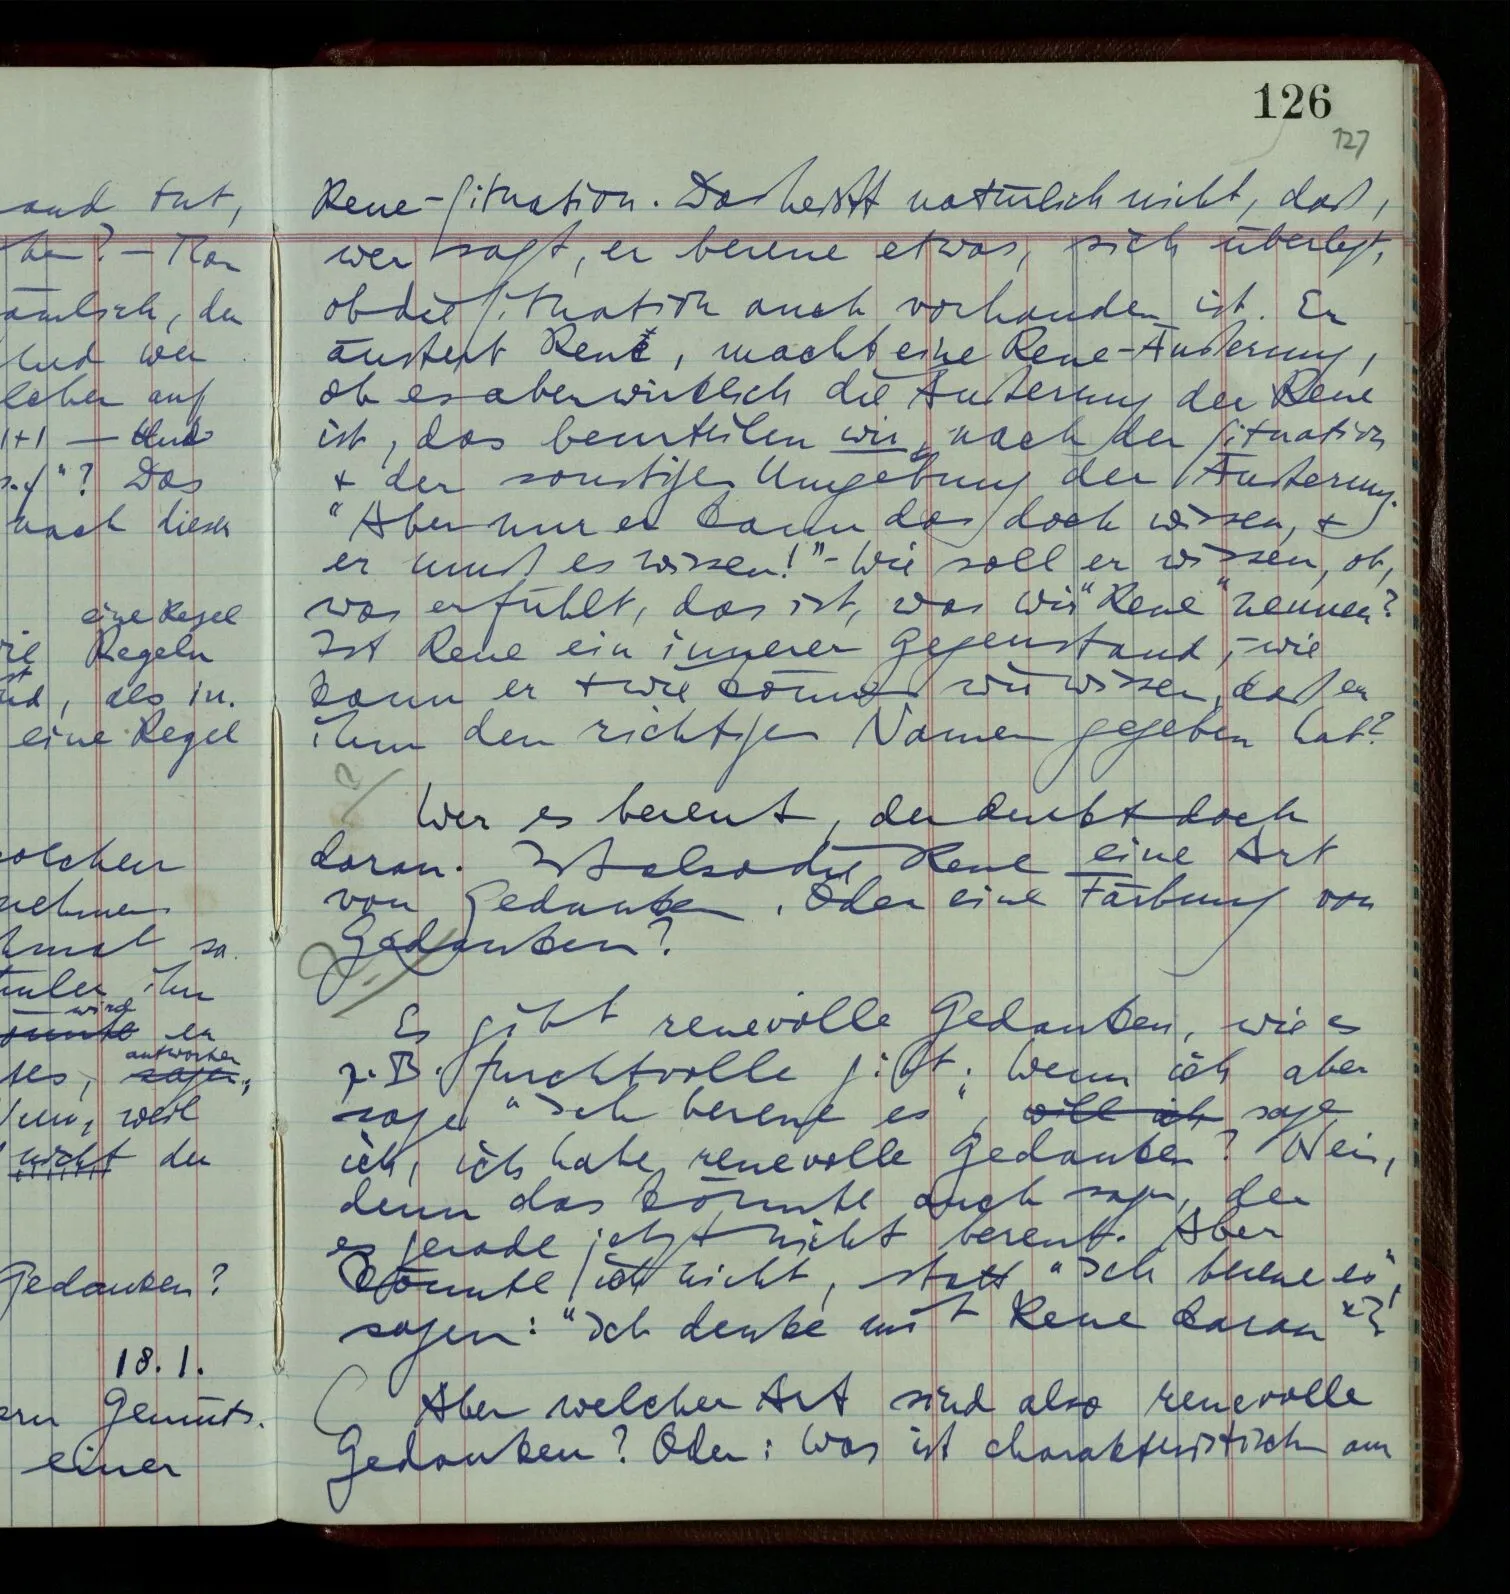 126
127
and tut,
ben? – Man
ämlich, der
Und wer
lcher auf
1+1 — Und
s.f."? Das
nach dieser
eine Regel
Regeln
nd, als in.
eine Regel
solchen
nehmen
hmal so
ihn
wird
konnte er
antworten
tes, sagen,
Nun, weil
nicht der
Gedanken?
18.1.
ern Gemüts.
einer
Reue-Situation. Das heißt natürlich nicht, daß,
wer sagt, er bereue etwas, sich überlegt,
ob die Situation auch vorhanden ist. Er
äußert Reue, macht eine Reue-Äußerung,
ob es aber wirklich die Äußerung der Reue
ist, das beurteilen wir, nach der Situation
+ der sonstigen Umgebung der Äußerung.
"Aber nur er kann das doch wissen, +
er muß es wissen!" – Wie soll er wissen, ob,
was er fühlt, das ist, was wir "Reue" nennen?
Ist Reue ein innerer Gegenstand, – wie
kann er + wie können wir wissen, daß er
ihm den richtigen Namen gegeben hat?
Wer es bereut, der denkt doch
daran. Ist also die Reue eine Art
von Gedanken. Oder eine Färbung von
Gedanken?
Es gibt reuevolle Gedanken, wie es
z.B. furchtvolle gibt. Wenn ich aber
sage "Ich bereue es", will ich sage
ich, ich habe reuevolle Gedanken? Nein,
denn das könnte auch sagen, der
es gerade jetzt nicht bereut. Aber
könnte ich nicht, statt "Ich bereue es",
sagen: "Ich denke mit Reue daran"?
Aber welcher Art sind also reuevolle
Gedanken? Oder: Was ist charakteristisch am